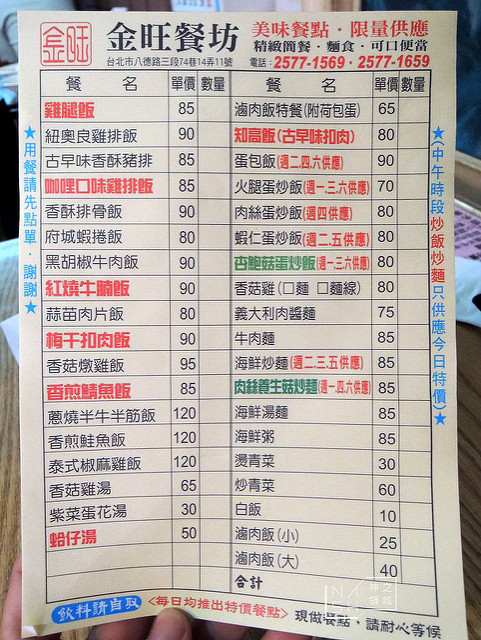 金旺
金旺餐坊
台北市八德路三段74巷14弄11號
美味餐點・限量供應
精緻簡餐・麵食・可口便當
電話：2577-1569・2577-1659
餐名 單價 數量 餐名 單價 數量
雞腿飯 85 滷肉飯特餐(附荷包蛋) 65
紐奧良雞排飯 90 知高飯(古早味扣肉) 80
古早味香酥豬排 85 蛋包飯(週二.四.六供應) 90
咖哩口味雞排飯 85 火腿蛋炒飯(週一.三.六供應) 70
香酥排骨飯 90 肉絲蛋炒飯(週四供應) 80
府城蝦捲飯 80 蝦仁蛋炒飯(週二.五供應) 80
黑胡椒牛肉飯 90 杏鮑菇蛋炒飯(週一.三.六供應) 80
紅燒牛腩飯 90 香菇雞(□麵 □麵線) 80
蒜苗肉片飯 80 義大利肉醬麵 75
梅干扣肉飯 90 牛肉麵 85
香菇燉雞飯 95 海鮮炒麵(週二.三.五供應) 85
香煎鯖魚飯 85 肉絲養生菇炒麵(週一.四.六供應) 85
蔥燒半牛半筋飯 120 海鮮湯麵 85
香煎鮭魚飯 120 海鮮粥 85
泰式椒麻雞飯 120 燙青菜 30
香菇雞湯 65 炒青菜 60
紫菜蛋花湯 30 白飯 10
蛤仔湯 50 滷肉飯(小) 25
滷肉飯(大) 40
合計
★用餐請先點單・謝謝★
★(中午時段炒飯炒麵只供應今日特價)★
飲料請自取 <每日均推出特價餐點> 現做餐點，請耐心等候